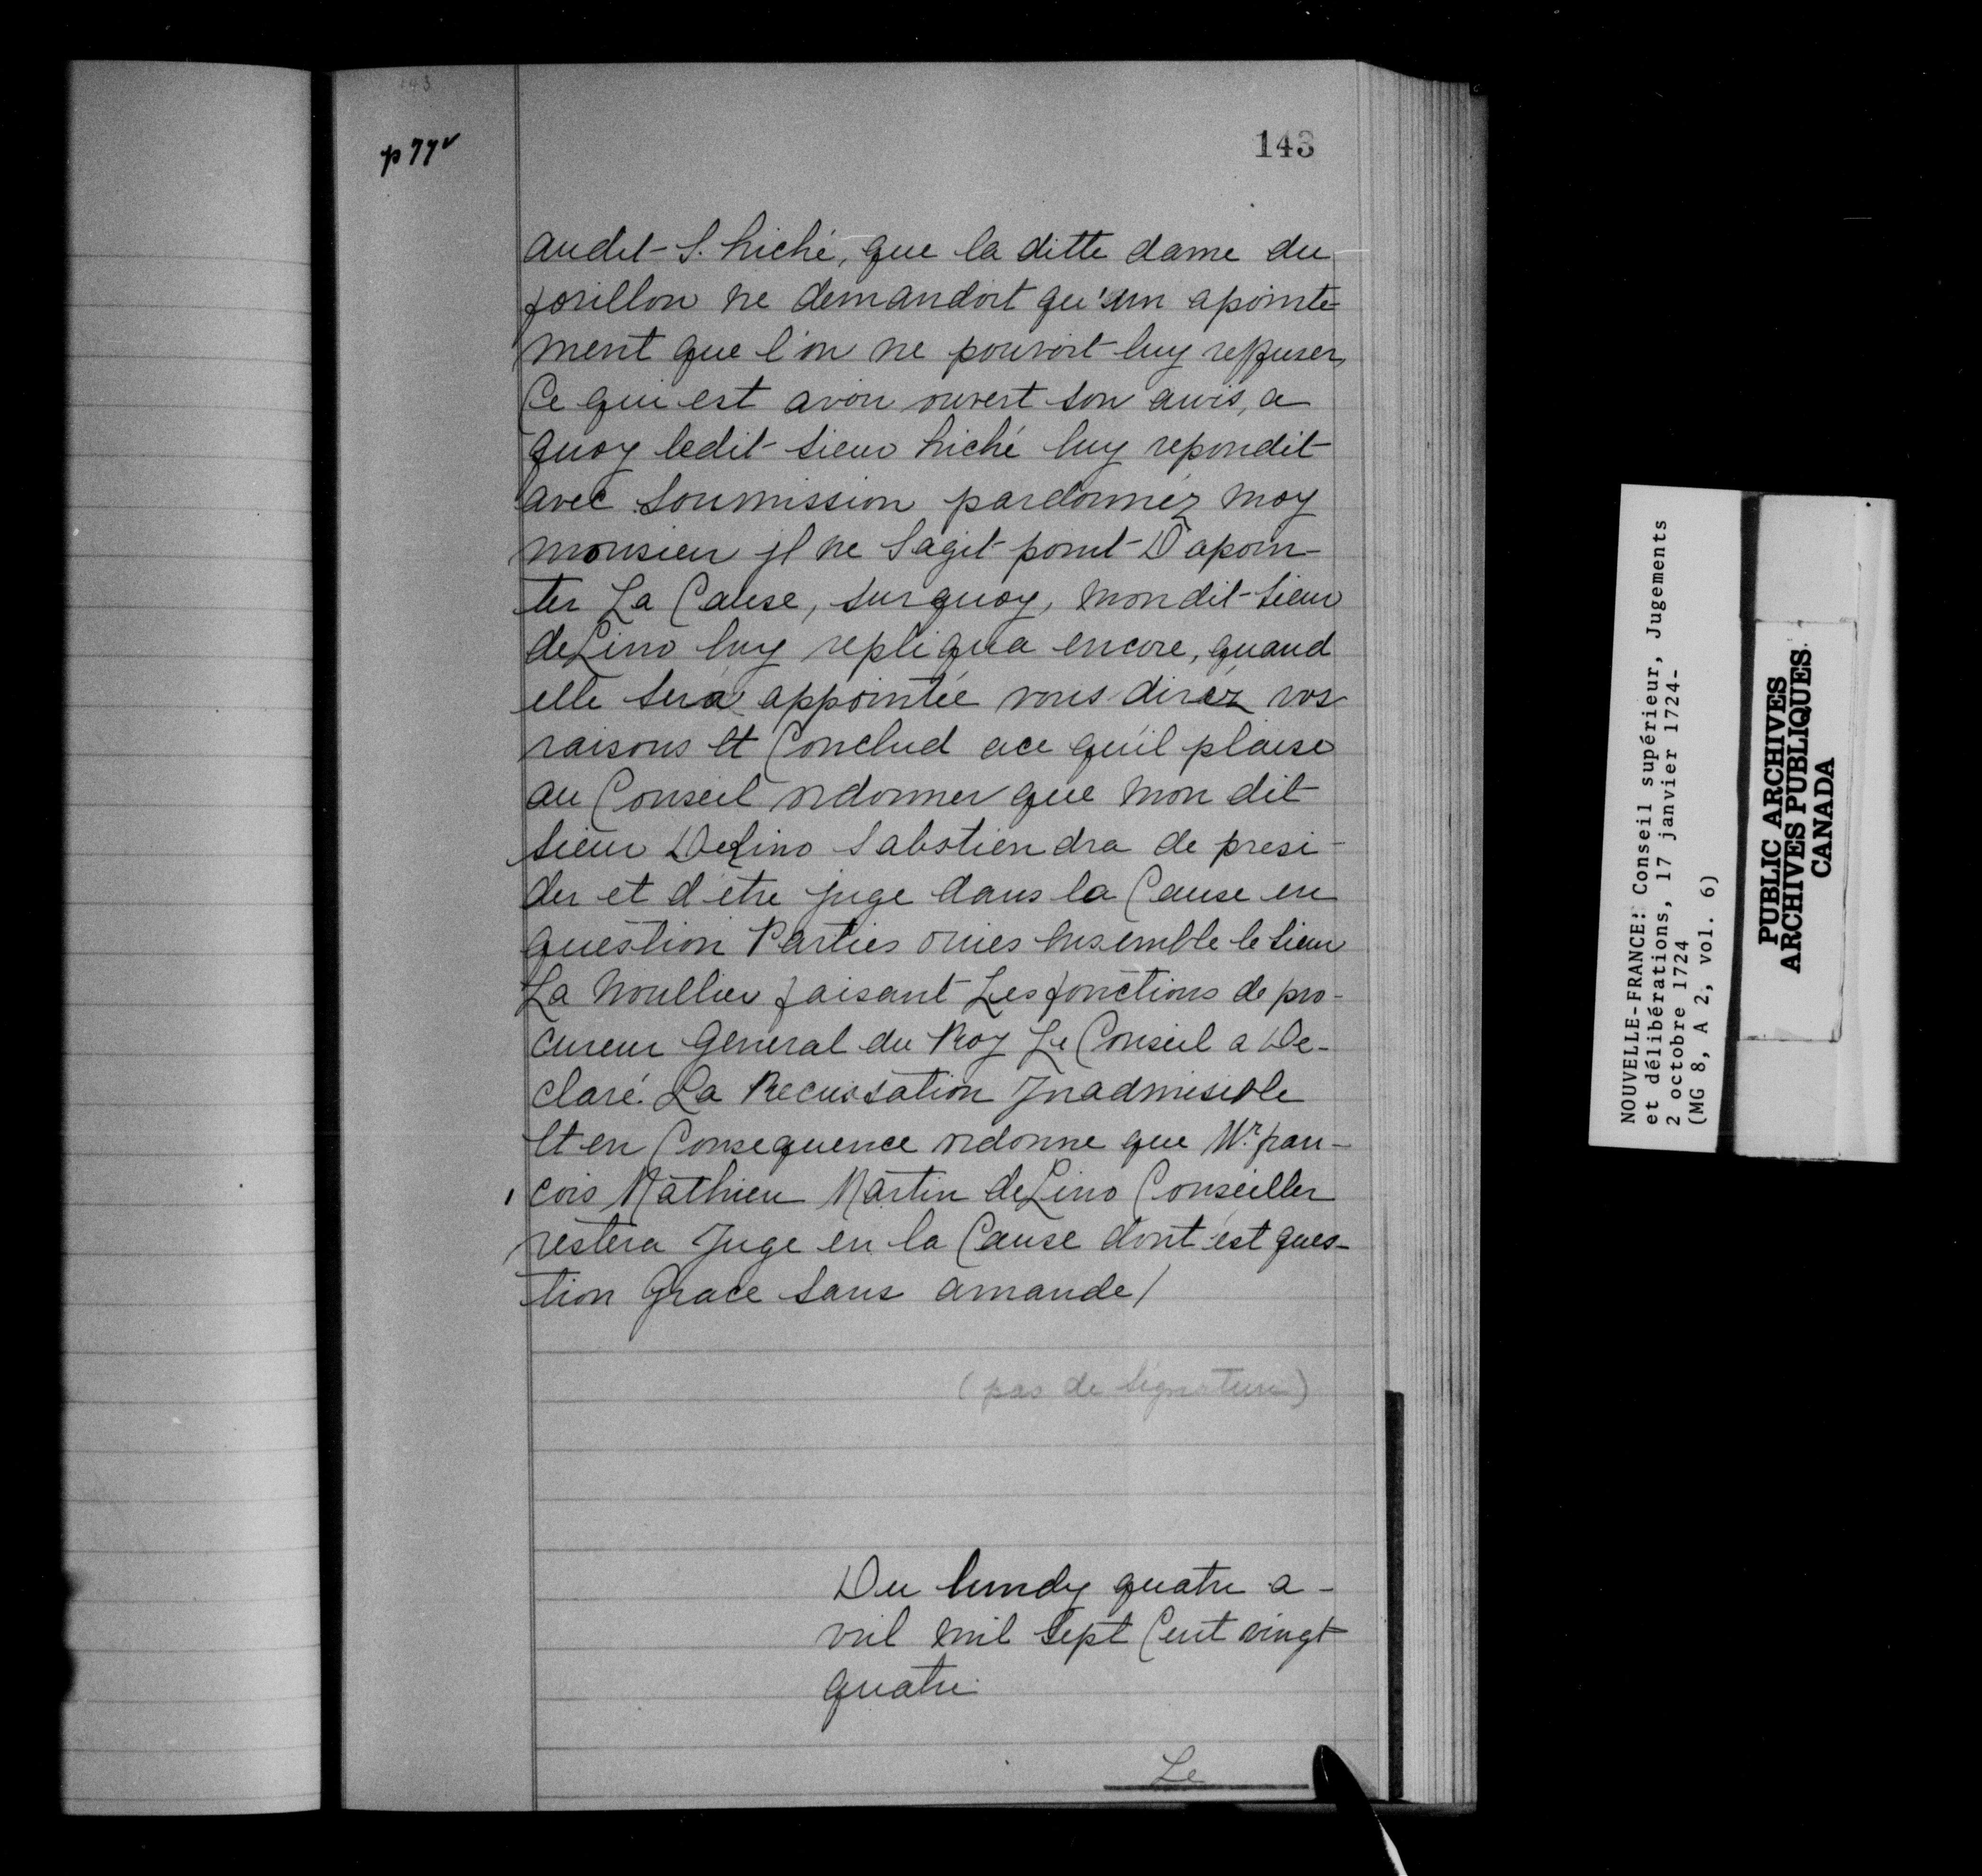 143
p 77v
143
audit S. hiché, que la ditte dame du
forillon ne demandoit qu'un apointe-
ment que l'on ne pouvoit luy reffuser,
Ce qui est avoir ouvert son avis, a
quoy ledit sieur hiché luy repondit
avec soumission pardonnéz moy
monsieur jl ne Sagit point D'apoin-
ter La Cause, surquoy, mondit sieur
deLino luy repliqua encore, quand
elle sera appointée vous diréz vos
raisons et Conclud ace qu'il plaise
au Conseil ordonner que mon dit
sieur DeLino Sabstiendra de presi-
der et d'etre juge dans la Cause en
question Parties ouies Ensemble le sieur
La Noullier faisant Les fonctions de pro-
cureur General du Roy Le Conseil a De-
claré La Recussation Inadmisible
Et en Consequence ordonne que Mr. fran-
cois Mathieu Martin deLino Conseiller
restera Juge en la Cause dont est ques-
tion Grace sans amande /
(pas de signature)
Du lundy quatre a-
vril mil Sept Cent vingt
quatre
Le
NOUVELLE-FRANCE: Conseil supérieur, Jugements
et délibérations, 17 janvier 1724-
2 octobre 1724
(MG 8, A 2, vol. 6)
PUBLIC ARCHIVES
ARCHIVES PUBLIQUES
CANADA